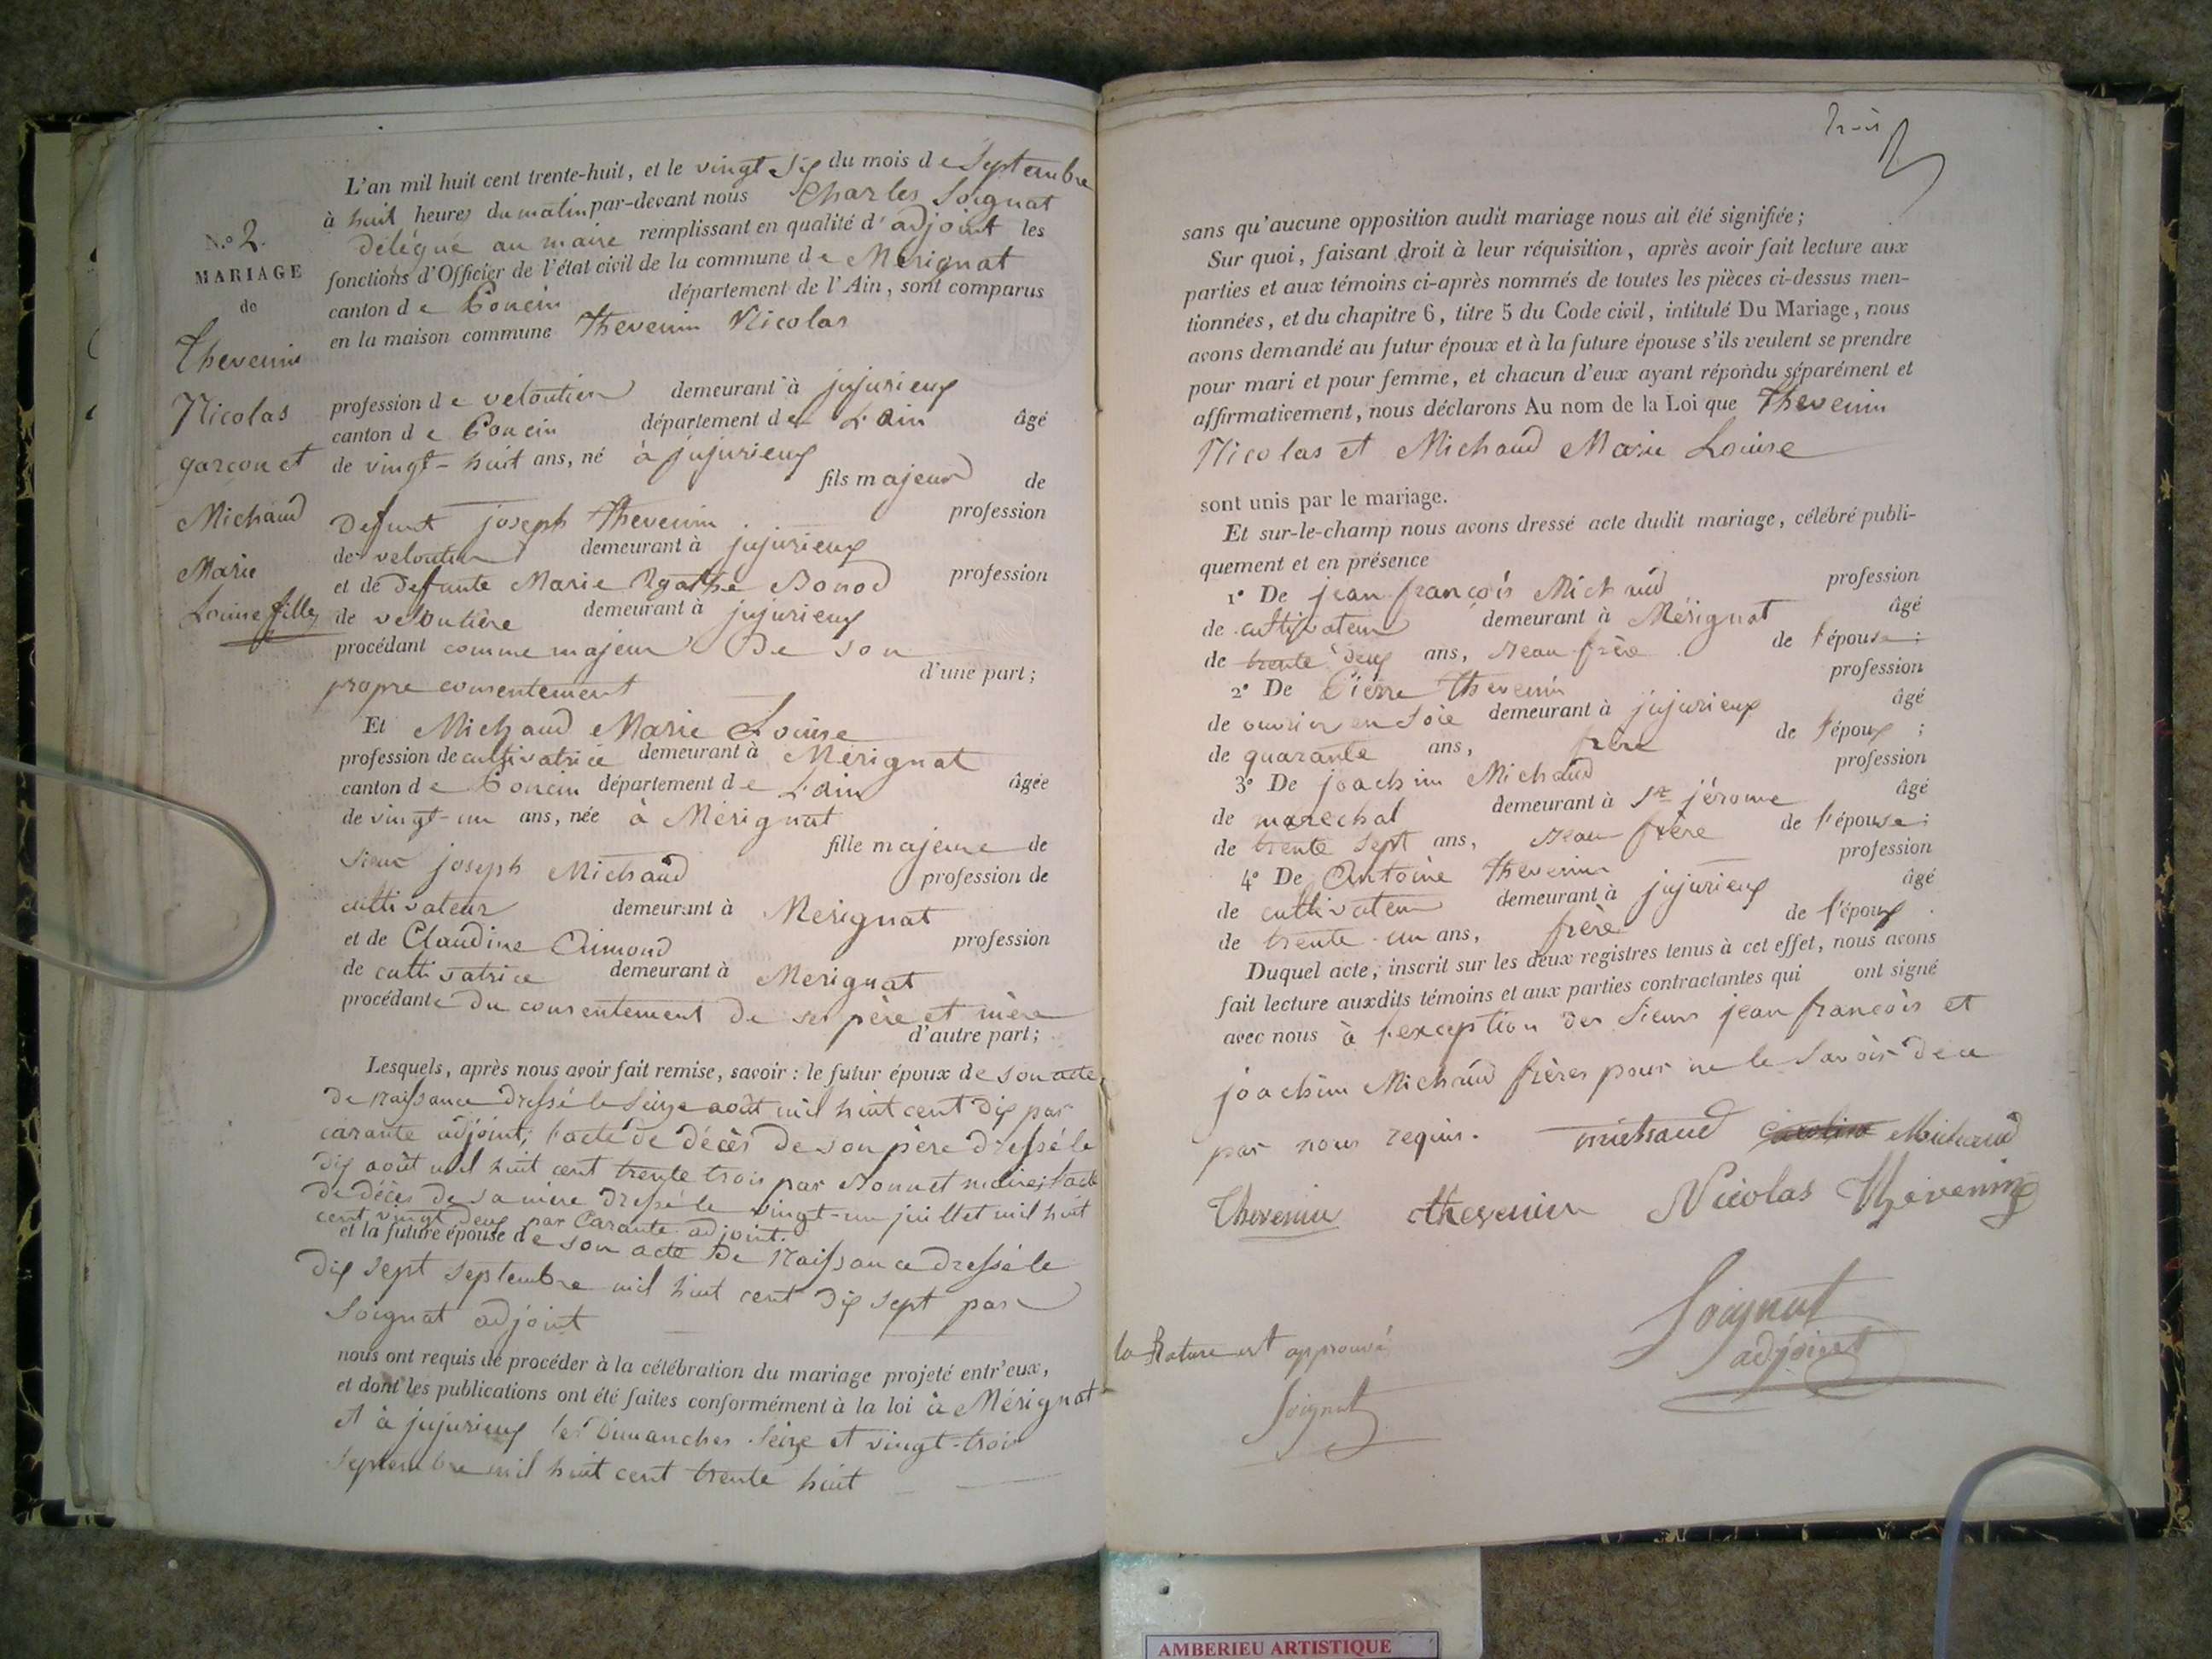 N.° 2.
MARIAGE
de
Thevenin
Nicolas
garçon et
Michaud
Marie
Louise fille
L'an mil huit cent trente-huit, et le vingt six du mois de Septembre
à huit heures du matin par-devant nous Charles Soignat
délégué au maire remplissant en qualité d'adjoint les
fonctions d'Officier de l'état civil de la commune de Mérignat
canton de Poncin département de l'Ain, sont comparus
en la maison commune Thevenin Nicolas
profession de veloutier demeurant à jujurieux
canton de Poncin département de L'ain âgé
de vingt-huit ans, né à jujurieux
fils majeur de
Defunt joseph Thevenin profession
de veloutier demeurant à jujurieux
et de defunte Marie Agathe Bonod profession
de veloutière demeurant à jujurieux
procédant comme majeur De son
propre consentement d'une part;
Et Michaud Marie Louise
profession de cultivatrice demeurant à Mérignat
canton de Poncin département de L'ain âgée
de vingt-un ans, née à Mérignat
fille majeure de
Sieur joseph Michaud profession de
cultivateur demeurant à Merignat
et de Claudine Aimond profession
de cultivatrice demeurant à Merignat
procédante du consentement de ses père et mère
d'autre part;
Lesquels, après nous avoir fait remise, savoir: le futur époux de son acte
de naissance dressé le seize août mil huit cent dix par
carante adjoint; l'acte de décès de son père dressé le
dix août mil huit cent trente trois par Bonnet maire; l'acte
de décès de sa mère dressé le vingt-un juillet mil huit
cent vingt deux par Carante adjoint.
et la future épouse de son acte De naissance dressé le
dix sept septembre mil huit cent dix sept par
Soignat adjoint
nous ont requis de procéder à la célébration du mariage projeté entr'eux,
et dont les publications ont été faites conformément à la loi à Mérignat
et à jujurieux les Dimanches seize et vingt-trois
septembre mil huit cent trente huit
trois
sans qu'aucune opposition audit mariage nous ait été signifiée;
Sur quoi, faisant droit à leur réquisition, après avoir fait lecture aux
parties et aux témoins ci-après nommés de toutes les pièces ci-dessus men-
tionnées, et du chapitre 6, titre 5 du Code civil, intitulé Du Mariage, nous
avons demandé au futur époux et à la future épouse s'ils veulent se prendre
pour mari et pour femme, et chacun d'eux ayant répondu séparément et
affirmativement, nous déclarons Au nom de la Loi que Thevenin
Nicolas et Michaud Marie Louise
sont unis par le mariage.
Et sur-le-champ nous avons dressé acte dudit mariage, célébré publi-
quement et en présence
1° De jean françois Michaud profession
de cultivateur demeurant à Mérignat âgé
de trente deux ans, Beau frère de l'épouse;
2° De Pierre Thevenin profession
de ouvrier en Soie demeurant à jujurieux âgé
de quarante ans, frère de l'époux;
3° De joachim Michaud profession
de marechal demeurant à St jérome âgé
de trente sept ans, Beau frère de l'épouse;
4° De Antoine Thevenin profession
de cultivateur demeurant à jujurieux âgé
de trente-un ans, frère de l'époux.
Duquel acte, inscrit sur les deux registres tenus à cet effet, nous avons
fait lecture auxdits témoins et aux parties contractantes qui ont signé
avec nous à l'exception des Sieurs jean françois et
joachim Michaud frères pour ne le Savoir de ce
par nous requis. michaud Michaud
Thevenin thevenin Nicolas Thevenin
Soignat
adjoint
la Rature est approuvé
Soignat
AMBERIEU ARTISTIQUE